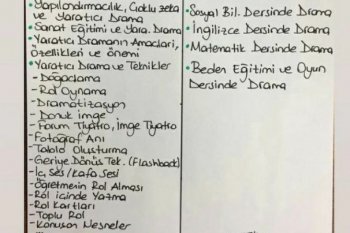 • Yapılandırmacılık, Çoklu zeka
ve Yaratıcı Drama
• Sanat Eğitimi ve Yara. Drama
• Yaratıcı Dramanın Amaçları,
Özellikleri ve önemi
• Yaratıcı Drama ve Teknikler
- Doğaçlama
- Rol Oynama
- Dramatizasyon
- Donuk imge
- Forum Tiyatro, İmge Tiyatro
- Fotoğraf Anı
- Tablo Oluşturma
- Geriye Dönüş Tek. (Flashback)
- İç Ses / Kafa Sesi
- Öğretmenin Rol Alması
- Rol içinde Yazma
- Rol Kartları
- Toplu Rol
- Konuşan Nesneler
• Sosyal Bil. Dersinde Drama
• İngilizce Dersinde Drama
• Matematik Dersinde Drama
• Beden Eğitimi ve Oyun
Dersinde Drama